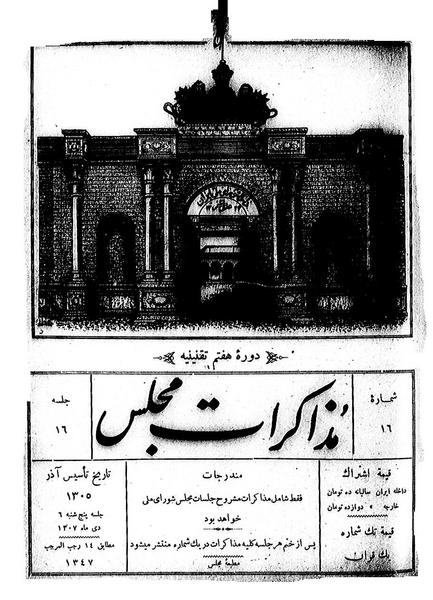 دورهٔ هفتم تقنینیه
شمارهٔ
۱۶
مذاکرات مجلس
جلسه
۱۶
قیمة اشتراك
داخله ایران سالیانه ده تومان
خارجه » دوازده تومان
قیمة تك شماره
يك قران
مندرجات
فقط شامل مذاکرات مشروح جلسات مجلس شورای ملی
خواهد بود
پس از ختم هر جلسه کلیه مذاکرات در یك شماره منتشر میشود
مطبعهٔ مجلس
تاریخ تأسیس آذر
۱۳۰۵
جلسه پنج شنبه ۶
دی ماه ۱۳۰۷
مطابق ۱۴ رجب المرجب
۱۳۴۷